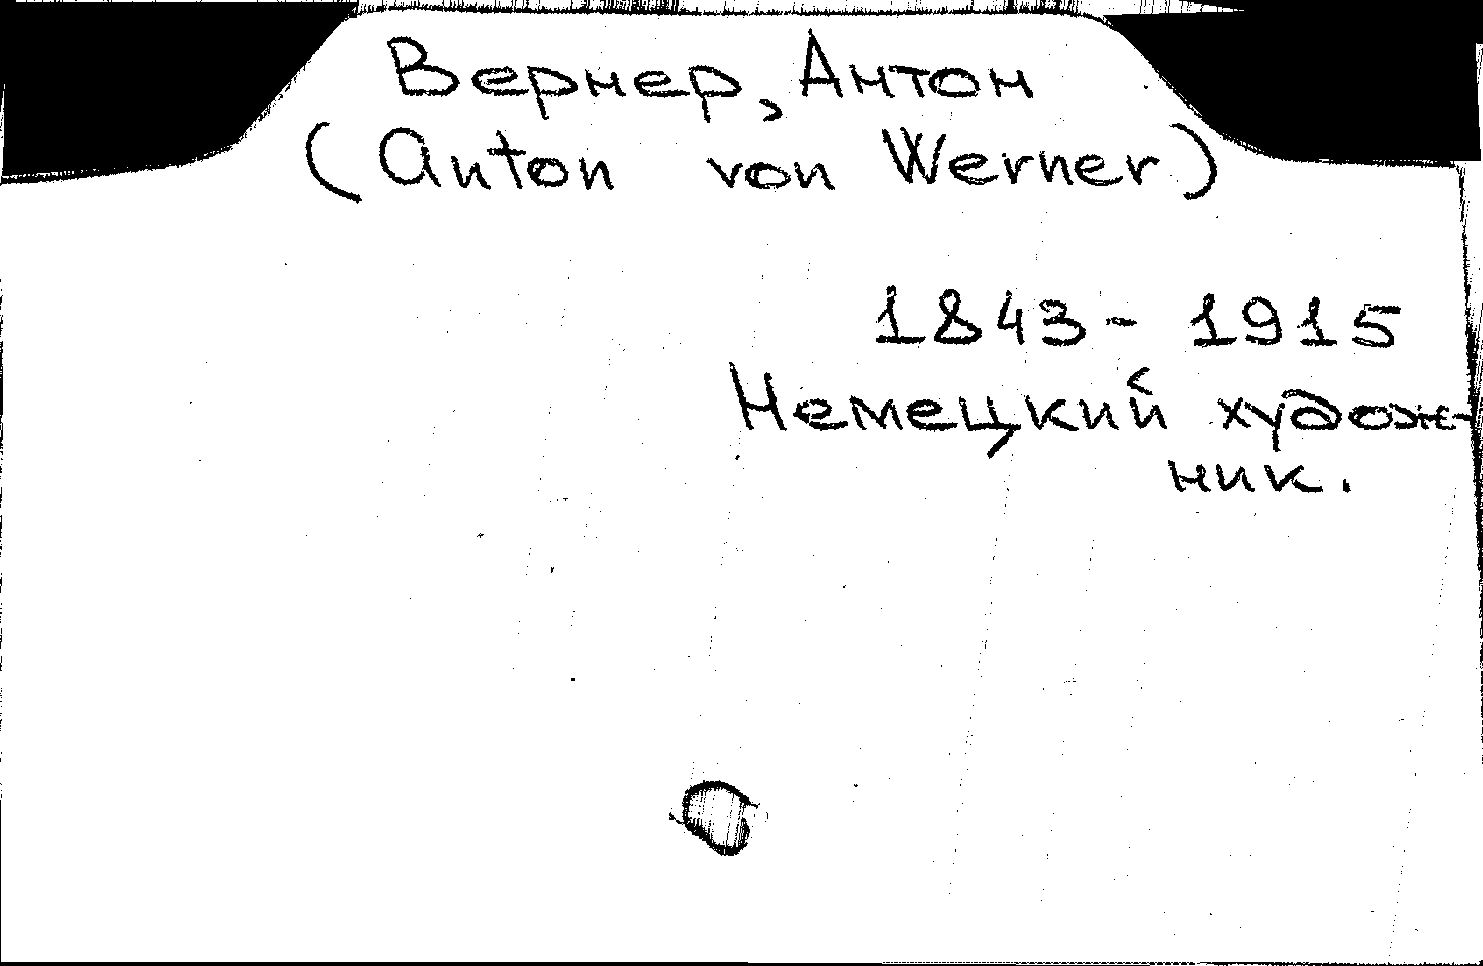 Вернер, Антон
(Anton von Werner)
1843 - 1915
Немецкий худож-
ник.